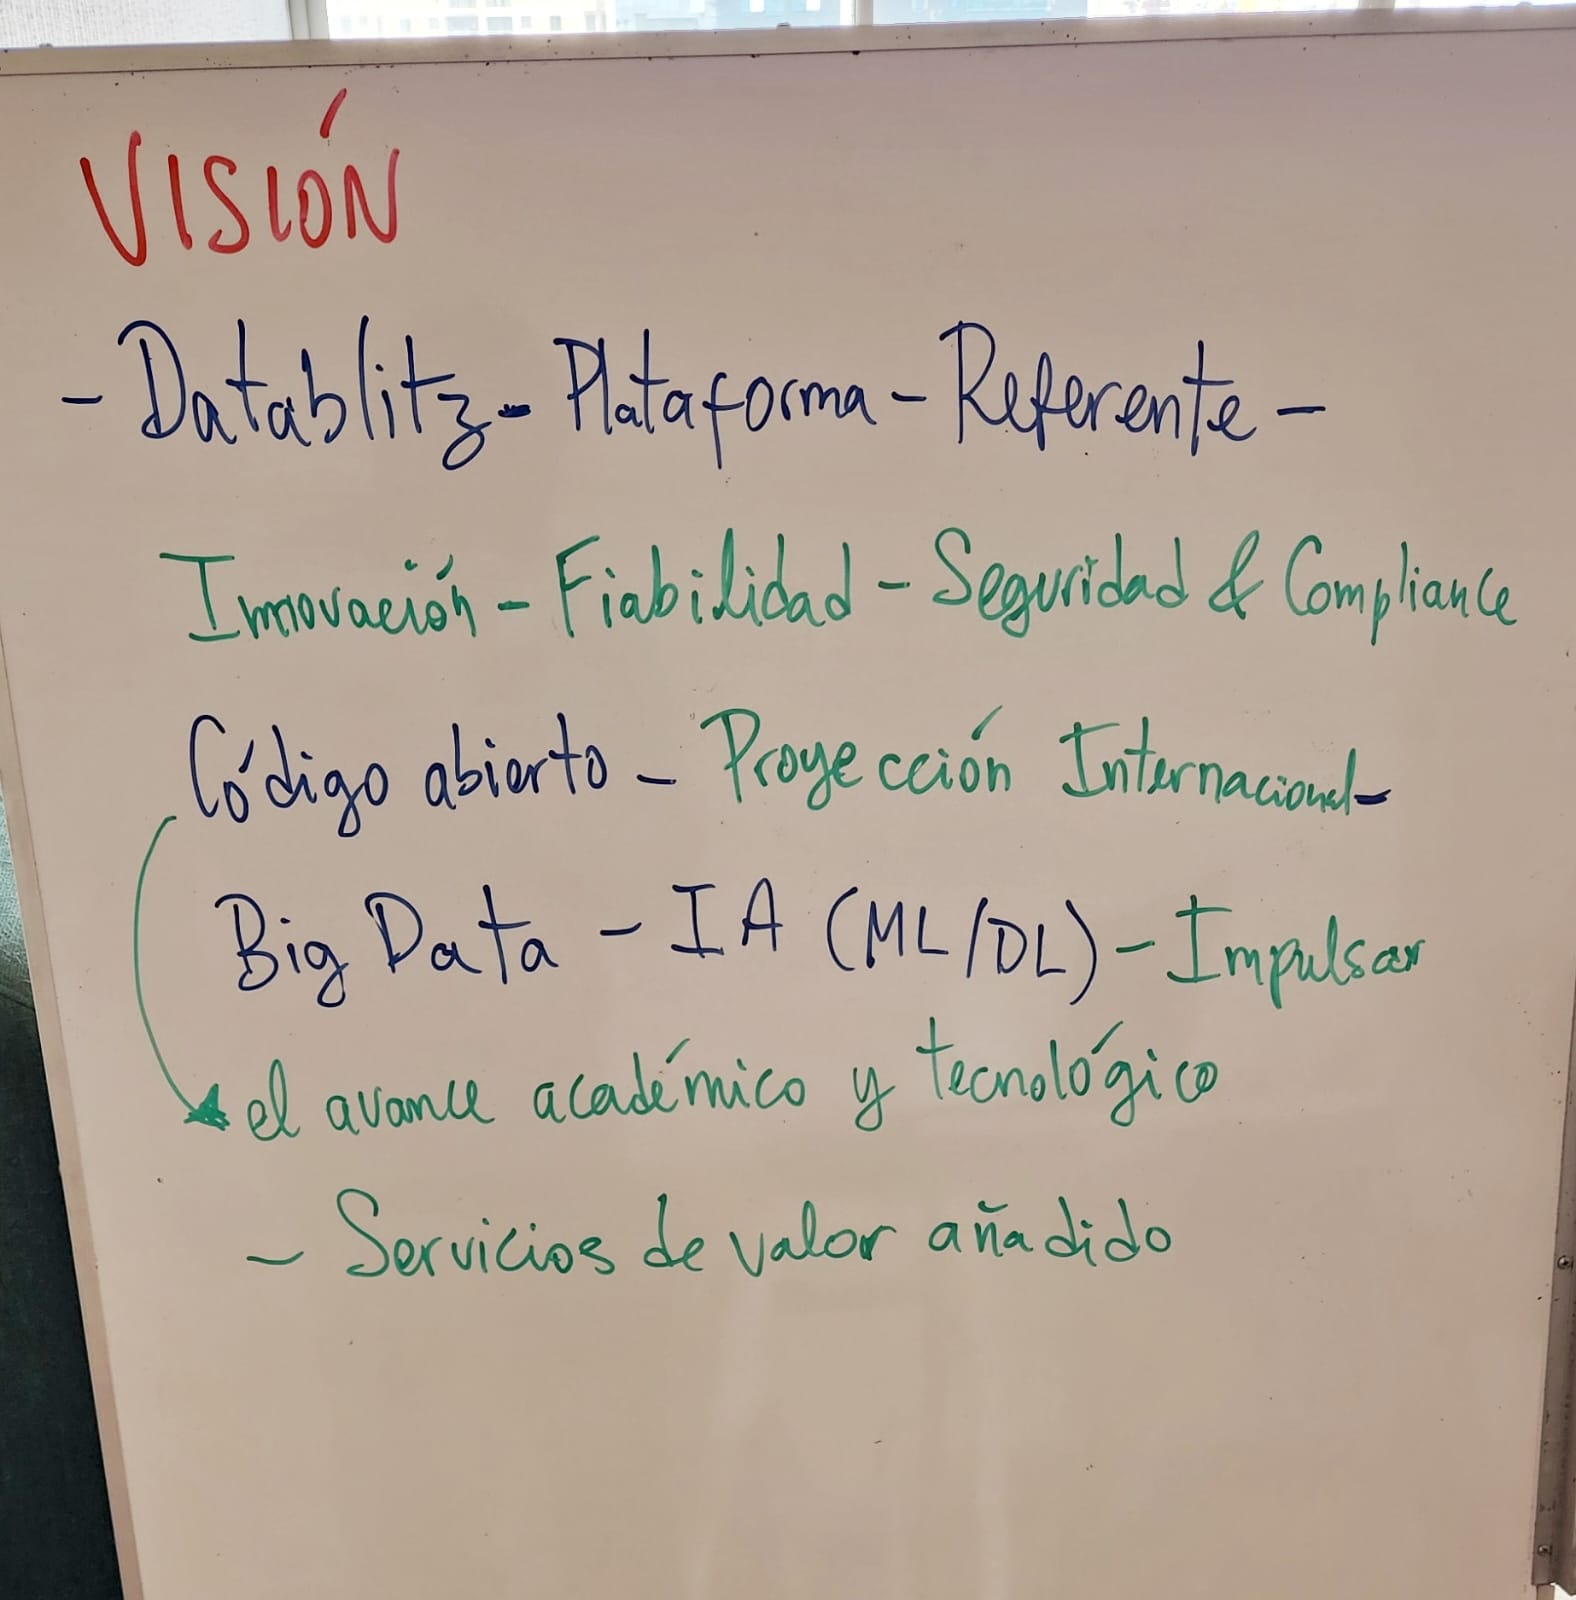 VISIÓN
- Datablitz - Plataforma - Referente -
Innovación - Fiabilidad - Seguridad & Compliance
Código abierto - Proyección Internacional -
Big Data - IA (ML/DL) - Impulsar
el avance académico y tecnológico
- Servicios de valor añadido